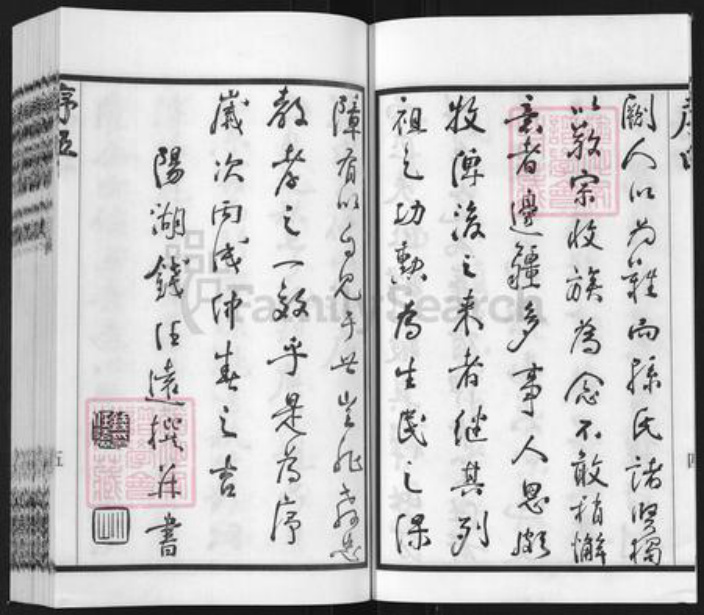 劂人以為難而孫氏諸賢獨
以敬宗收族為念不敢稍懈
意者邊疆多事人思頗
牧俾後之來者繼其列
祖之功勲為生民之保
障有以自見于世豈非教忠
教孝之一效乎是為序
歲次丙戌仲春之吉
陽湖錢任遠撰并書
序五
五
四
FamilySearch